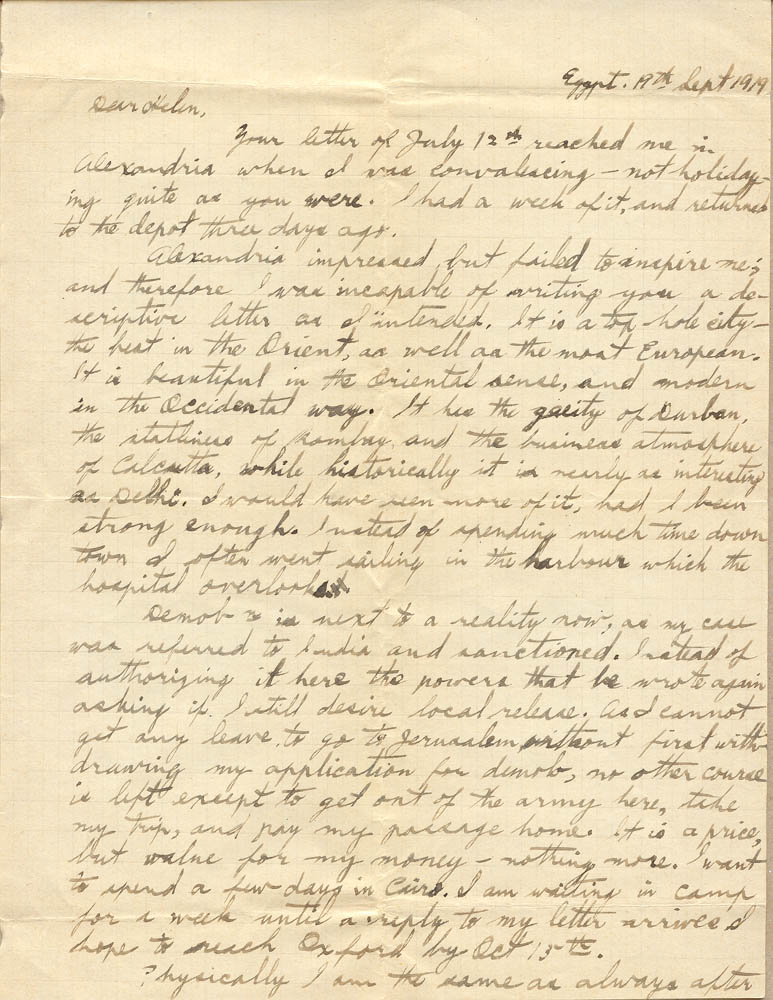 Egypt. 19th Sept 1919
Dear Helen,
Your letter of July 12th reached me in
Alexandria when I was convalescing – not holiday-
ing quite as you were. I had a week of it, and returned
to the depot three days ago.
Alexandria impressed but failed to inspire me;
and therefore I was incapable of writing you a de-
scriptive letter as I intended. It is a top-hole city –
the best in the Orient, as well as the most European.
It is beautiful in the Oriental sense, and modern
in the Occidental way. It has the gaeity of Durban,
the statliness of Bombay, and the business atmosphere
of Calcutta, while historically it is nearly as interesting
as Delhi. I would have seen more of it, had I been
strong enough. Instead of spending much time down
town I often went sailing in the harbour which the
hospital overlooks.
Demob is next to a reality now, as my case
was referred to India and sanctioned. Instead of
authorizing it here the powers that be wrote again
asking if I still desire local release. As I cannot
get any leave to go to Jerusalem without first with-
drawing my application for demob, no other course
is left except to get out of the army here, take
my trip, and pay my passage home. It is a price,
but value for my money – nothing more. I want
to spend a few days in Cairo. I am waiting in camp
for a week until a reply to my letter arrives I
hope to reach Oxford by Oct 15th.
Physically I am the same as always after